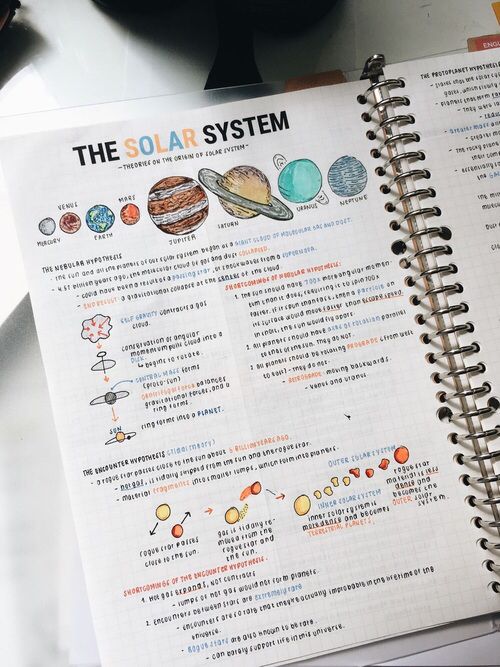 THE SOLAR SYSTEM
- THEORIES ON THE ORIGIN OF SOLAR SYSTEM -
MERCURY
VENUS
EARTH
MARS
JUPITER
SATURN
URANUS
NEPTUNE
THE NEBULAR HYPOTHESIS
- the sun and all the planets of our solar system began as a GIANT CLOUD OF MOLECULAR GAS AND DUST.
- 4.57 billion years ago, the molecular cloud of gas and dust COLLAPSED.
- could have been a result of a passing star, or shockwaves from a SUPERNOVA.
- END RESULT: a gravitational collapse at the center of the cloud.
SELF GRAVITY contracts a gas cloud.
conservation of angular momentum pulls cloud into a DISK.
↳ begins to rotate.
CENTRAL MASS forms (proto-sun)
centrifugal force balances gravitational forces, and a ring forms.
SUN
ring forms into a PLANET.
SHORTCOMINGS OF NEBULAR HYPOTHESIS:
1. The sun should have 700x more angular momentum than it does, requiring it to spin 100x faster. If it spun that fast, then a particle at its surface would move
in fact, the sun would fly apart.
2. All planets should have axes of rotation parallel to that of the sun. They do not.
3. All planets should be rotating PROGRADE (from west to east) - they do not.
- RETROGRADE - moving backwards.
- Venus and Uranus
THE ENCOUNTER HYPOTHESIS (tidal theory)
- a rogue star passes close to the sun about 5 BILLION YEARS AGO.
- hot gas is tidally stripped from the sun and the rogue star.
- material fragments into smaller lumps, which form into planets.
rogue star passes close to the sun.
gas is tidally removed from the rogue star and the sun.
OUTER SOLAR SYSTEM
INNER SOLAR SYSTEM
inner solar system is more dense and becomes TERRESTRIAL PLANETS.
rogue star material is less dense and becomes the OUTER SOLAR system.
SHORTCOMINGS OF THE ENCOUNTER HYPOTHESIS:
1. Hot gas expands, not contracts
- lumps of hot gas would not form planets.
2. Encounters between stars are extremely rare
- encounters are so rare that they're actually improbable in the lifetime of the universe.
- ROGUE STARS are also known to be rare.
- can barely support life in this universe.
ENGL
THE PROTOPLANET HYPOTHESIS